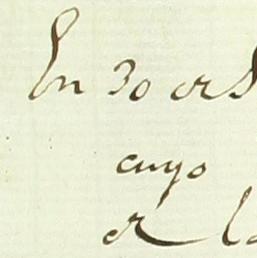 En 30 de
cuyo
de la